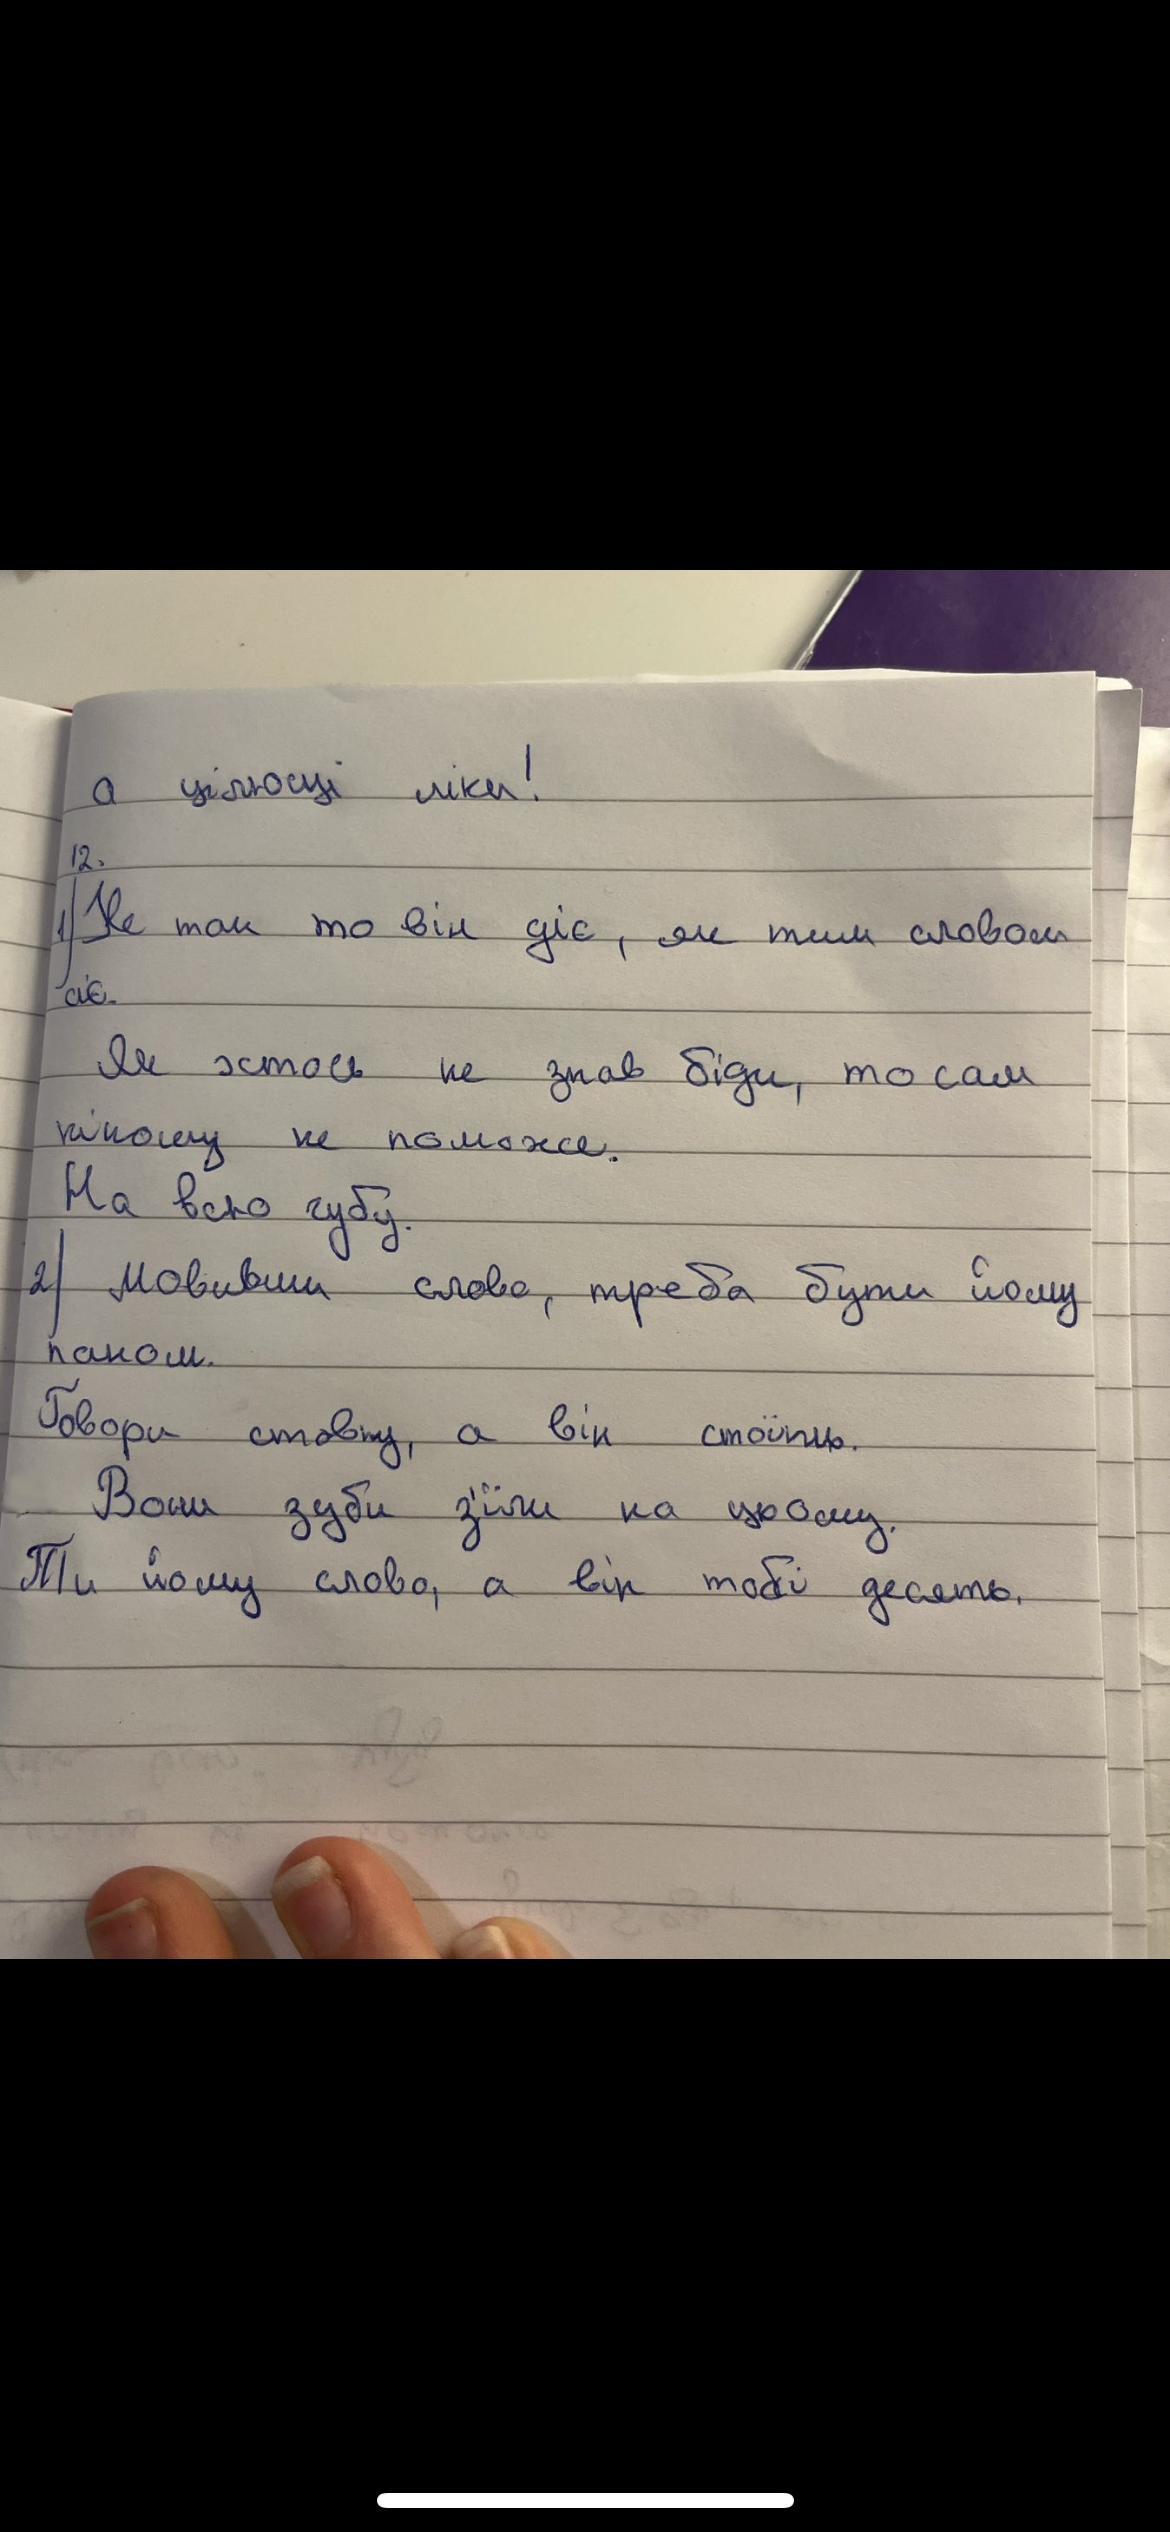 а цілющі ліки!
12.
1) Не так то він діє, як тим словом
сіє.
Як хтось не знав біди, то сам
нікому не поможе.
На всю губу.
2) Мовивши слово, треба бути йому
паном.
Говори стовпу, а він стоїть.
Вони зуби з'їли на цьому.
Ти йому слово, а він тобі десять.